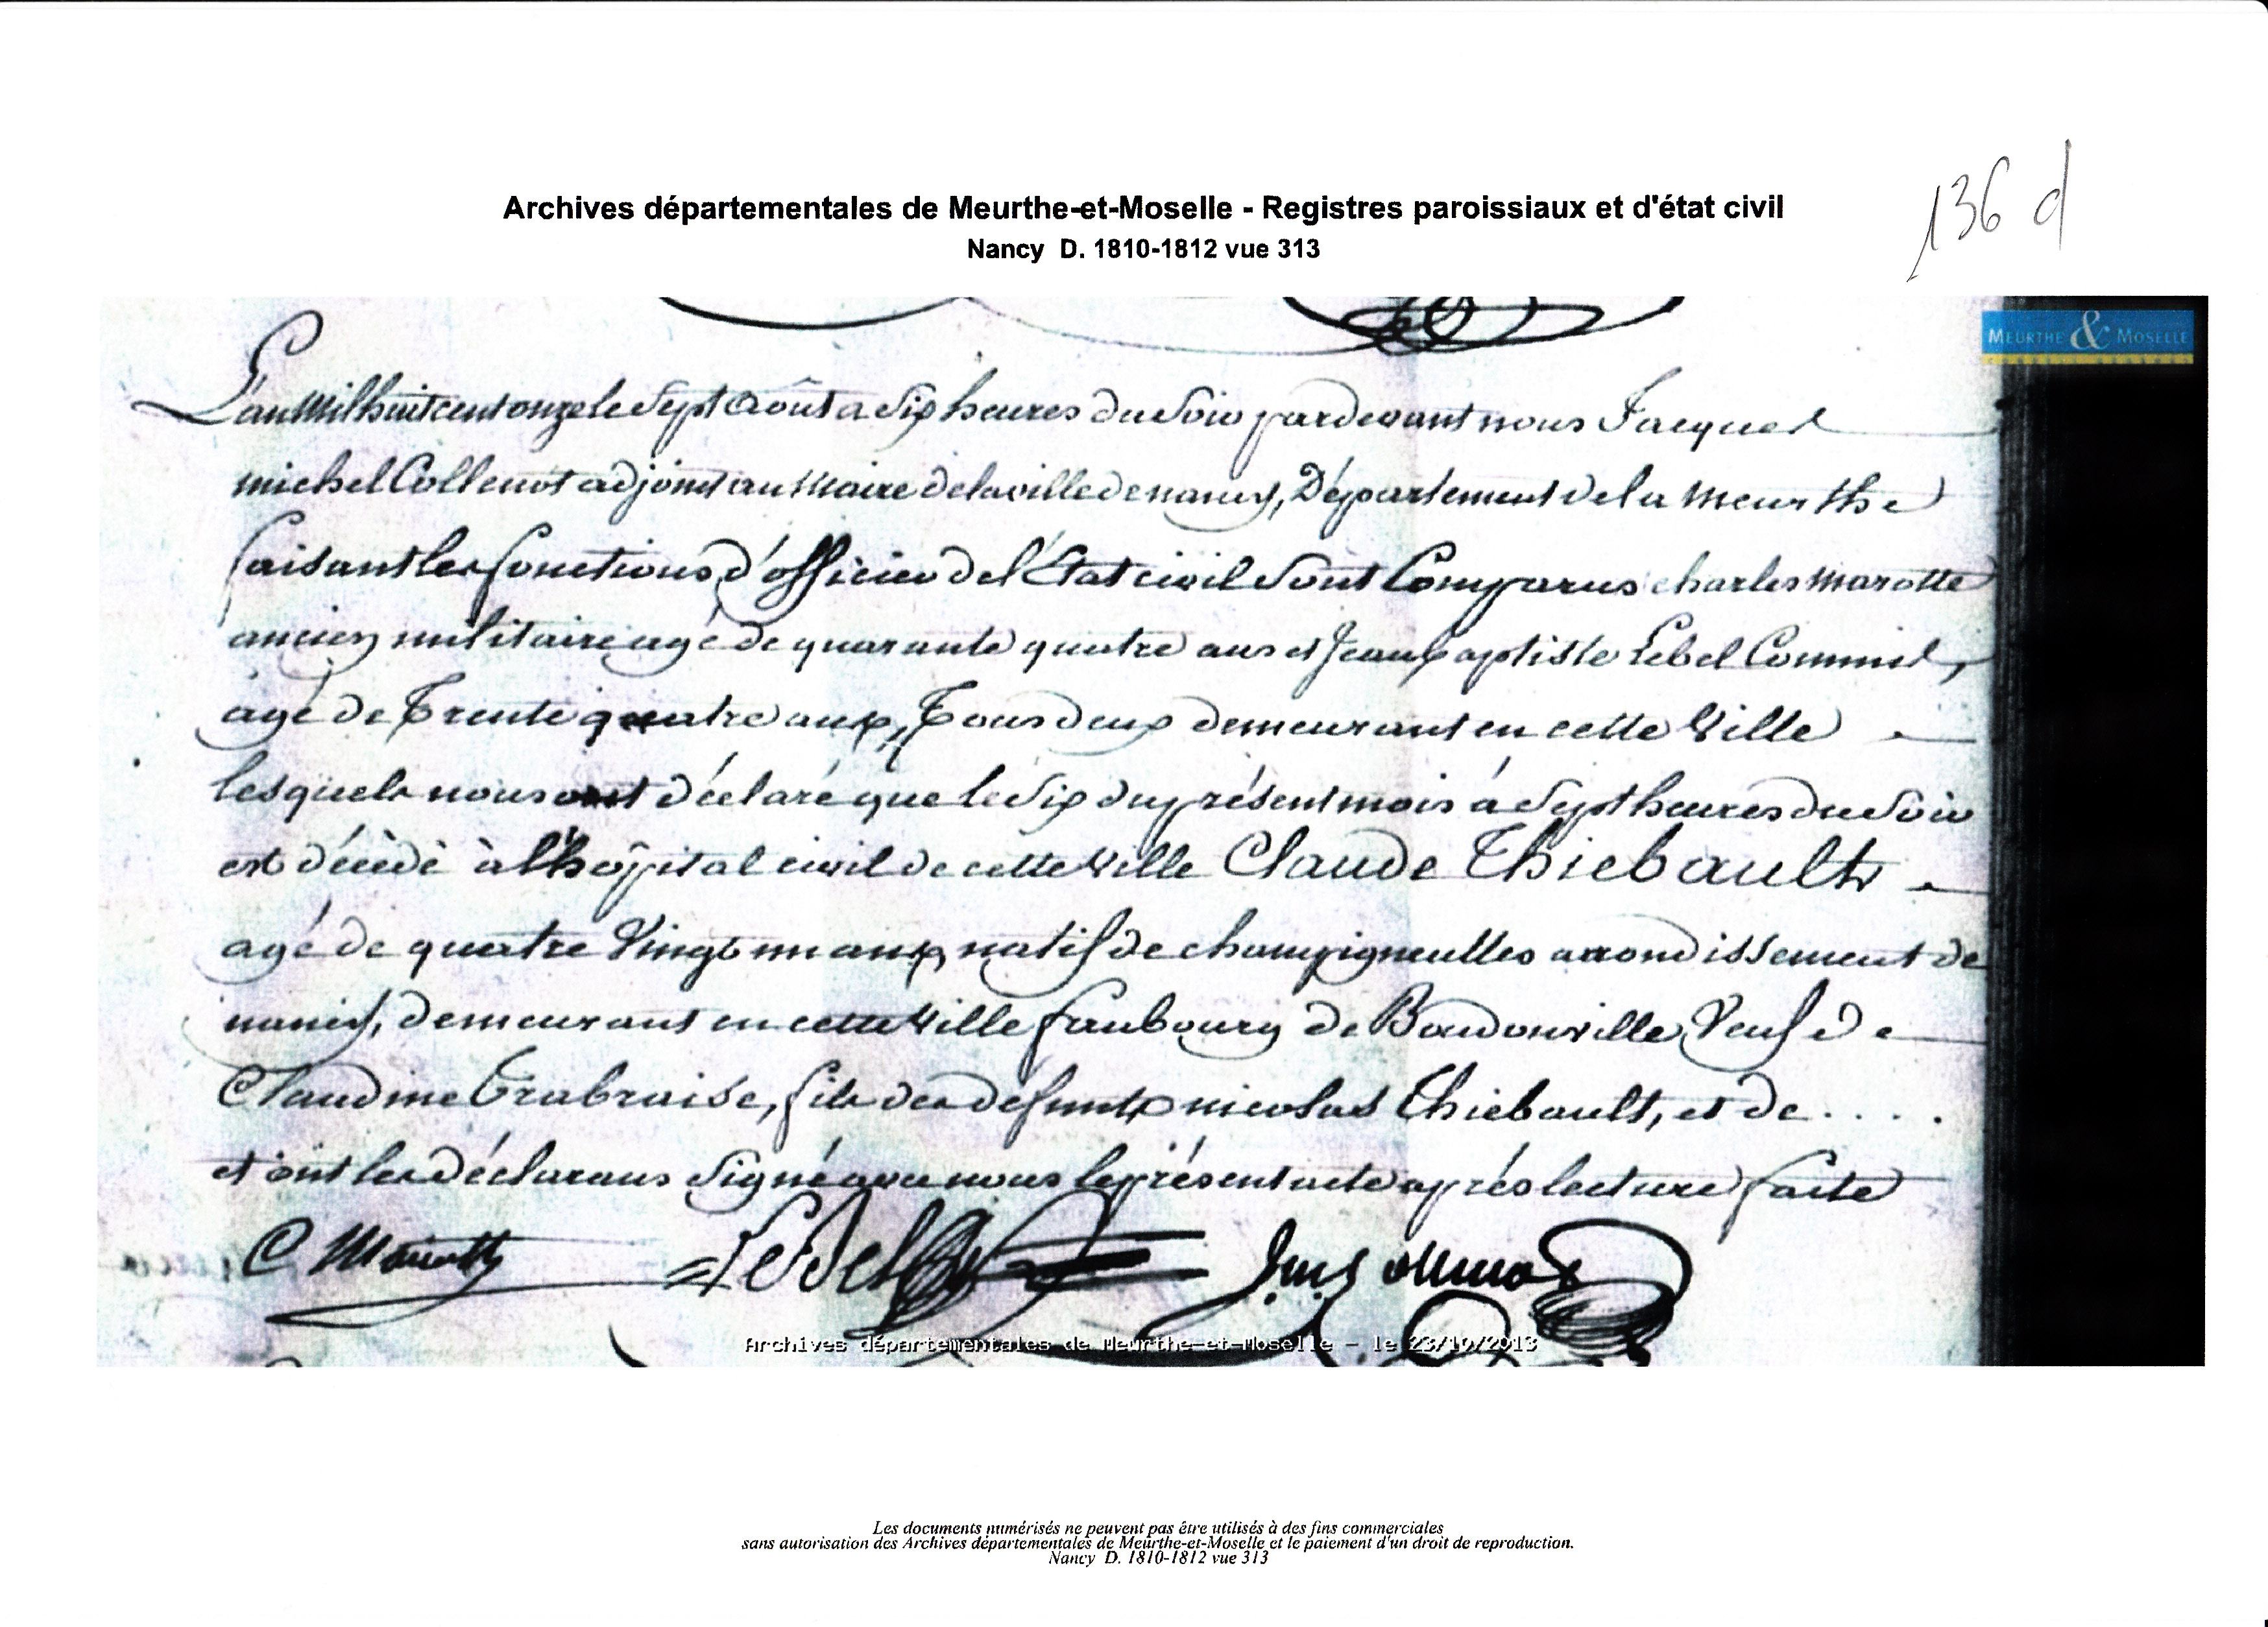 136 d
Archives départementales de Meurthe-et-Moselle - Registres paroissiaux et d'état civil
Nancy D. 1810-1812 vue 313
MEURTHE & MOSELLE
L'an Mil huit cent onze le Sept Août a Six heures du Soir pardevant nous Jacques
michel Collenot adjoint au Maire de la ville de nancy, Département de la Meurthe
faisant les fonctions d'officier de l'État civil Sont Comparus charles marotte
ancien militaire age de quarante quatre ans et Jean baptiste Lebel Commis,
agé de Trente quatre ans, Tous deux demeurant en cette Ville
lesquels nous ont déclaré que le Six du présent mois à Sept heures du Soir
est décédé à l'hôpital civil de cette Ville Claude Thiebault
agé de quatre Vingt un ans, natif de champigneulles arrondissement de
nancy, demeurant en cette Ville faubourg de Boudonville Veuf de
Claudine Grabraise, fils des defunts nicolas Thiebault, et de . . . .
et ont les déclarans Signé avec nous le présent acte après lecture faite
C Marotte Lebel
Archives départementales de Meurthe-et-Moselle - le 23/10/2013
Les documents numérisés ne peuvent pas être utilisés à des fins commerciales
sans autorisation des Archives départementales de Meurthe-et-Moselle et le paiement d'un droit de reproduction.
Nancy D. 1810-1812 vue 313